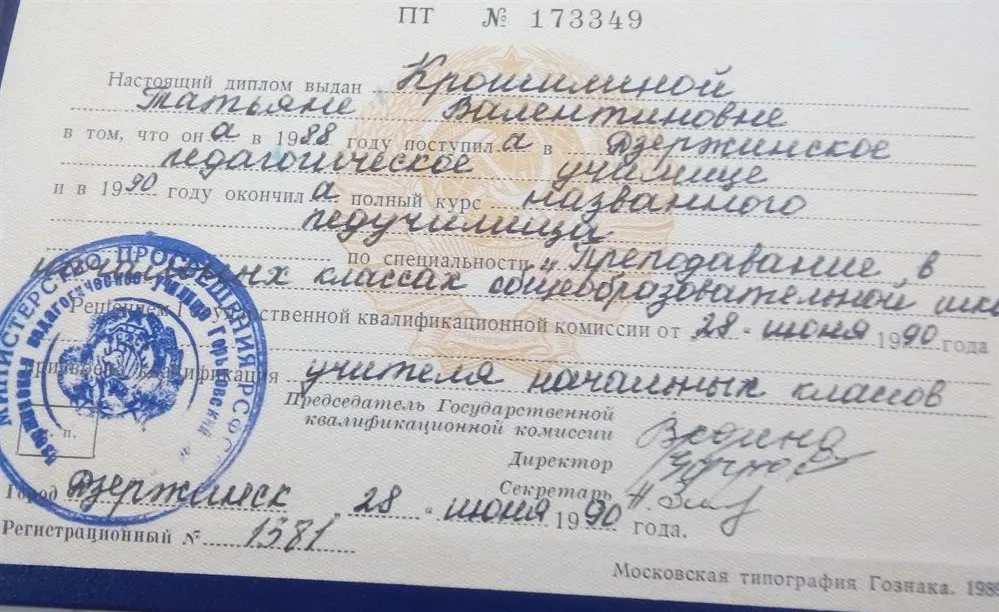 ПТ № 173349
Настоящий диплом выдан Крошилиной
Татьяне Валентиновне
в том, что она в 1988 году поступила в Дзержинское
педагогическое училище
и в 1990 году окончила полный курс названного
педучилища
по специальности „Преподавание в
начальных классах общеобразовательной шко
Решением Государственной квалификационной комиссии от 28 июня 1990 года
присвоена квалификация учителя начальных классов
Председатель Государственной
квалификационной комиссии
Директор
Секретарь
М. П.
Город Дзержинск „28 " июня 1990 года.
Регистрационный № 1381
Московская типография Гознака. 1989
МИНИСТЕРСТВО ПРОСВЕЩЕНИЯ РСФСР